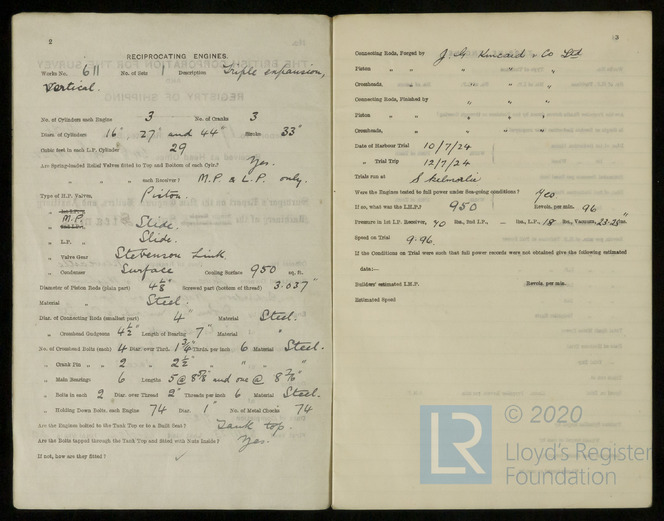 2
RECIPROCATING ENGINES.
Works No. 611 No. of Sets 1 Description Triple expansion,
Vertical.
No. of Cylinders each Engine 3 No. of Cranks 3
Diars. of Cylinders 16" 27" and 44" Stroke 33"
Cubic feet in each L.P. Cylinder 29
Are Spring-loaded Relief Valves fitted to Top and Bottom of each Cylr.? Yes.
" " each Receiver? M.P. & L.P. only.
Type of H.P. Valves, Piston
M.P. Slide.
" L.P. " Slide.
" Valve Gear Stevenson Link
" Condenser Surface Cooling Surface 950 sq. ft.
Diameter of Piston Rods (plain part) Screwed part (bottom of thread) 3.037"
Material " Steel.
Diar. of Connecting Rods (smallest part) 4" Material Steel.
" Crosshead Gudgeons 4½" Length of Bearing 7" Material "
No. of Crosshead Bolts (each) 4 Diar. over Thrd. 1¾" Thrds. per inch 6 Material Steel.
" Crank Pin " " 2 " 2½" " " "
" Main Bearings 6 Lengths 5 @ and one @
" Bolts in each 2 Diar. over Thread 2" Threads per inch 6 Material Steel.
" Holding Down Bolts, each Engine 74 Diar. 1" No. of Metal Chocks 74
Are the Engines bolted to the Tank Top or to a Built Seat? Tank top.
Are the Bolts tapped through the Tank Top and fitted with Nuts Inside? Yes.
If not, how are they fitted? ✓
3
Connecting Rods, Forged by J. G. Kincaid & Co Ltd
Piston " " " "
Crossheads, " " "
Connecting Rods, Finished by " "
Piston " " " "
Crossheads, " " "
Date of Harbour Trial 10/7/24
" Trial Trip 12/7/24
Trials run at Skelmorlie
Were the Engines tested to full power under Sea-going conditions? Yes
If so, what was the I.H.P.? 950 Revols. per min. 96.
Pressure in 1st L.P. Receiver, 40 lbs., 2nd L.P., — lbs., L.P., 18 lbs., Vacuum, ins.
Speed on Trial 9.96.
If the Conditions on Trial were such that full power records were not obtained give the following estimated
data:—
Builders' estimated I.H.P. Revols. per min.
Estimated Speed
LR
© 2020
Lloyd's Register
Foundation